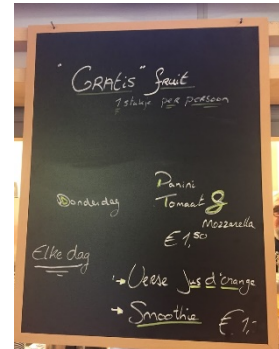 "GRATIS" fruit
1 stukje PER PERSOON
Donderdag
Panini
Tomaat &
Mozzarella
€ 1,50
Elke dag
→ Verse Jus d'orange
→ Smoothie € 1,-